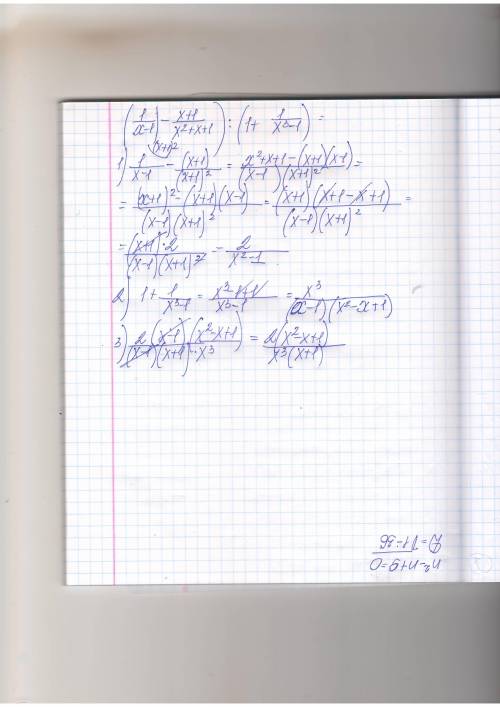 (1/(x-1) - (x+1)/(x²+x+1)) : (1 + 1/(x³-1)) =
(x+1)²
1) 1/(x-1) - (x+1)/(x+1)² = (x²+x+1-(x+1)(x-1))/((x-1)(x+1)²) =
= ((x+1)²-(x+1)(x-1))/((x-1)(x+1)²) = ((x+1)(x+1-x+1))/((x-1)(x+1)²) =
= ((x+1)·2)/((x-1)(x+1)²) = 2/(x²-1)
2) 1 + 1/(x³-1) = (x³-1+1)/(x³-1) = x³/((x-1)(x²-x+1))
3) (2(x-1)(x²-x+1))/((x-1)(x+1)·x³) = (2(x²-x+1))/(x³(x+1))
n²-n+9=0
D=√1-36